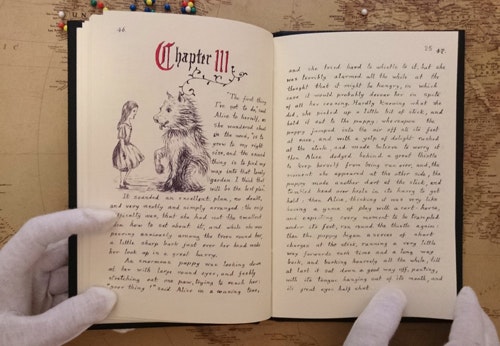 46.
Chapter III
"The first thing
I've got to do," said
Alice to herself, as
she wandered about
in the wood, "is to
grow to my right
size, and the second
thing is to find my
way into that lovely
garden. I think that
will be the best plan."
It sounded an excellent plan, no doubt,
and very neatly and simply arranged: the only
difficulty was, that she had not the smallest
idea how to set about it; and while she was
peering anxiously among the trees round her,
a little sharp bark just over her head made
her look up in a great hurry.
An enormous puppy was looking down
at her with large round eyes, and feebly
stretching out one paw, trying to reach her:
"poor thing!" said Alice in a coaxing tone,
47.
and she tried hard to whistle to it, but she
was terribly alarmed all the while at the
thought that it might be hungry, in which
case it would probably devour her in spite
of all her coaxing. Hardly knowing what she
did, she picked up a little bit of stick, and
held it out to the puppy: whereupon the
puppy jumped into the air off all its feet
at once, and with a yelp of delight rushed
at the stick, and made believe to worry it:
then Alice dodged behind a great thistle
to keep herself from being run over, and, the
moment she appeared at the other side, the
puppy made another dart at the stick, and
tumbled head over heels in its hurry to get
hold: then Alice, thinking it was very like
having a game of play with a cart-horse,
and expecting every moment to be trampled
under its feet, ran round the thistle again:
then the puppy began a series of short
charges at the stick, running a very little
way forwards each time and a long way
back, and barking hoarsely all the while, till
at last it sat down a good way off, panting,
with its tongue hanging out of its mouth, and
its great eyes half shut.